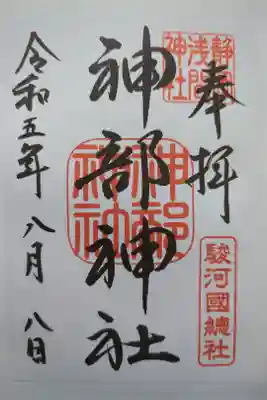 奉拝
静岡
浅間
神社
駿河國總社
神部神社
神部
神社
令和五年八月八日